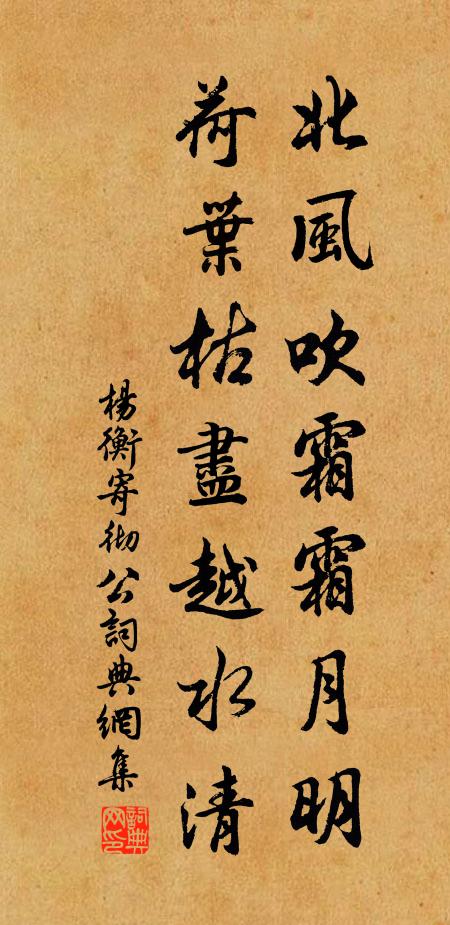 北風吹霜霜月明
荷葉枯盡越水清
楊衡寄彻公詞典網集
詞典網印